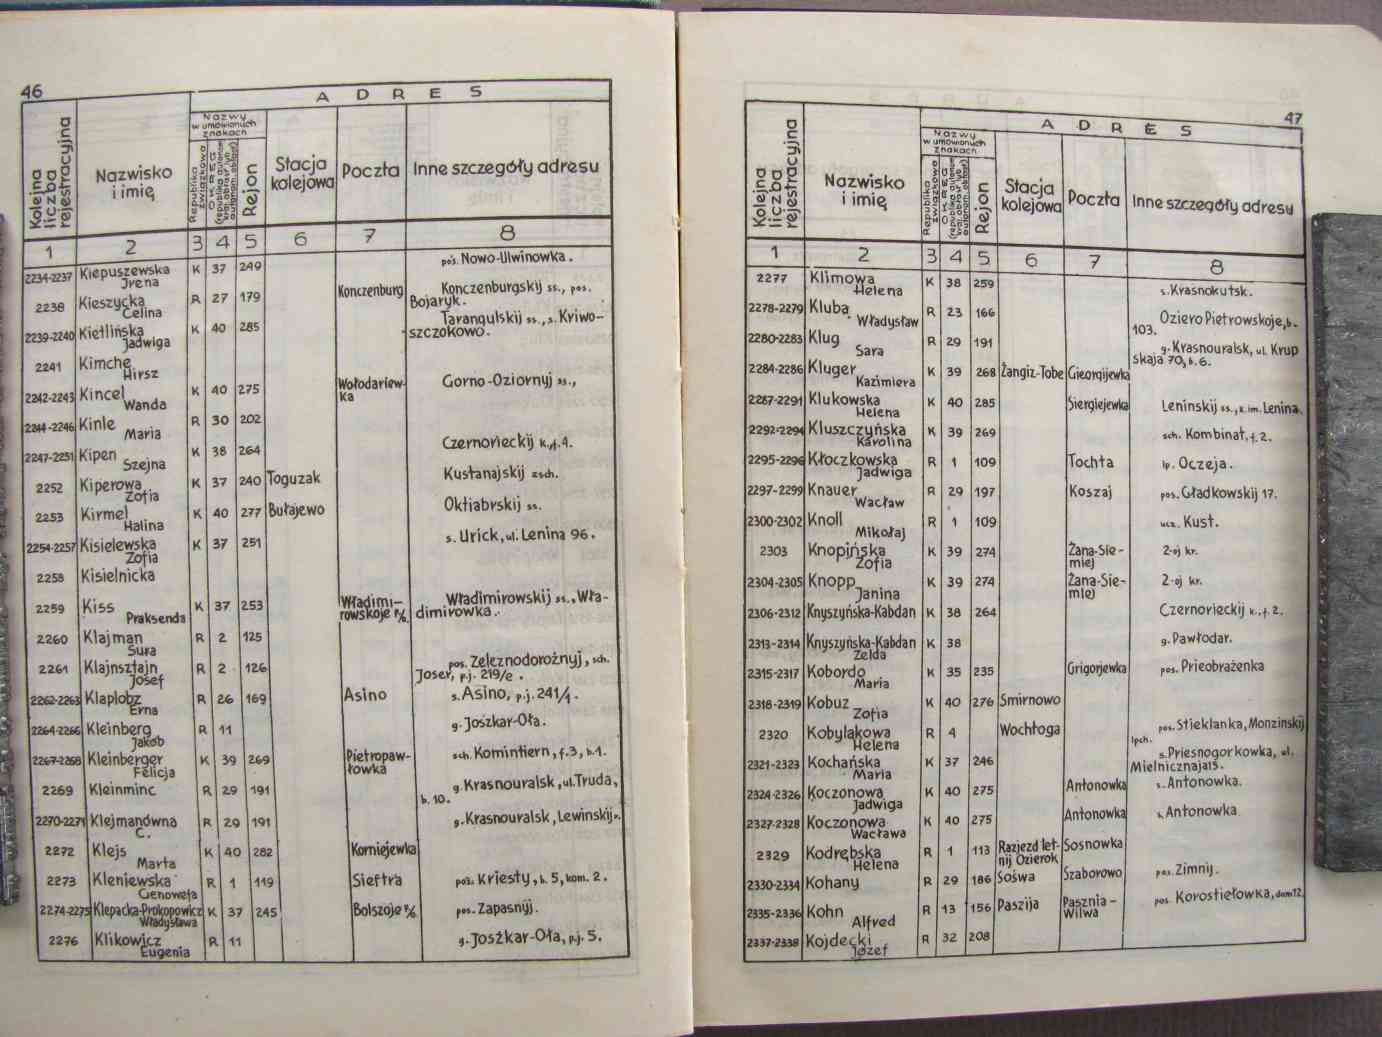 46
A D R E S
Kolejna liczba rejestracyjna
Nazwisko i imię
Nazwy w umówionych znakach
Republika związkowa
OKRĘG
Rejon
Stacja kolejowa
Poczta
Inne szczegóły adresu
1 2 3 4 5 6 7 8
2234-2237 Kiepuszewska Jrena K 37 249 pos. Nowo-Uwinowka.
2238 Kieszycka Celina R 27 179 Konczenburg Konczenburgskij ss., pos. Bojaryk.
2239-2240 Kietlińska Jadwiga K 40 285 Tarangulskij ss., s. Kriwo-szczokowo.
2241 Kimche Hirsz
2242-2243 Kincel Wanda K 40 275 Wołodariew-ka Gorno-Oziornyj ss.,
2244-2246 Kinle Maria R 30 202
2247-2251 Kipen Szejna K 38 264 Czernorieckij k., f. 4.
2252 Kiperowa Zofia K 37 240 Toguzak Kustanajskij zsch.
2253 Kirmel Halina K 40 277 Bułajewo Oktiabrskij ss.
2254-2257 Kisielewska Zofia K 37 251 s. Urick, ul. Lenina 96.
2258 Kisielnicka
2259 Kiss Praksenda K 37 253 Władimi-rowskoje r/s. Władimirowskij ss., Wła-dimirowka.
2260 Klajman Sura R 2 125
2261 Klajnsztajn Josef R 2 126 pos. Zeleznodorożnyj, sch. Joser, p.j. 219/e.
2262-2263 Klaplobz Erna R 26 169 Asino s. Asino, p.j. 241/4.
2264-2266 Kleinberg Jakób R 11 g. Joszkar-Oła.
2267-2268 Kleinberger Felicja K 39 269 Pietropaw-łowka sch. Komintiern, f. 3, b. 1.
2269 Kleinminc R 29 191 g. Krasnouralsk, ul. Truda, b. 10.
2270-2271 Klejmanówna C. R 29 191 g. Krasnouralsk, Lewinskij
2272 Klejs Marta K 40 282 Korniejewka
2273 Kleniewska Genowefa R 1 119 Sieftra pos. Kriesty, b. 5, kom. 2.
2274-2275 Klepacka-Prokopowicz Władysława K 37 245 Bolszoje r/s. pos. Zapasnyj.
2276 Klikowicz Eugenia R 11 g. Joszkar-Oła, p.j. 5.
47
A D R E S
Kolejna liczba rejestracyjna
Nazwisko i imię
Nazwy w umówionych znakach
Republika związkowa
OKRĘG
Rejon
Stacja kolejowa
Poczta
Inne szczegóły adresu
1 2 3 4 5 6 7 8
2277 Klimowa Helena K 38 259 s. Krasnokutsk.
2278-2279 Kluba Władysław R 23 166 Oziero Pietrowskoje, b. 103.
2280-2283 Klug Sara R 29 191 g. Krasnouralsk, ul. Krup skaja 70, k. 6.
2284-2286 Kluger Kazimiera K 39 268 Żangiz-Tobe Gieorgijewka
2287-2291 Klukowska Helena K 40 285 Siergiejewka Leninskij ss., k. im. Lenina.
2292-2294 Kluszczyńska Karolina K 39 269 sch. Kombinat, f. 2.
2295-2296 Kłoczkowska Jadwiga R 1 109 Tochta lp. Oczeja.
2297-2299 Knauer Wacław R 29 197 Koszaj pos. Gładkowskij 17.
2300-2302 Knoll Mikołaj R 1 109 ucz. Kust.
2303 Knopińska Zofia K 39 274 Żana-Sie-miej 2-oj kr.
2304-2305 Knopp Janina K 39 274 Żana-Sie-miej 2-oj kr.
2306-2312 Knyszyńska-Kabdan K 38 264 Czernorieckij k., f. 2.
2313-2314 Knyszyńska-Kabdan Zelda K 38 g. Pawłodar.
2315-2317 Kobordo Maria K 35 235 Grigorjewka pos. Prieobrażenka
2318-2319 Kobuz Zofia K 40 276 Smirnowo
2320 Kobylakowa Helena R 4 Wochtoga pos. Stieklanka, Monzinskij lpch.
2321-2323 Kochańska Maria K 37 246 s. Priesnogorkowka, ul. Mielnicznaja 15.
2324-2326 Koczonowa Jadwiga K 40 275 Antonowka s. Antonowka.
2327-2328 Koczonowa Wacława K 40 275 Antonowka s. Antonowka
2329 Kodrębska Helena R 1 113 Razjezd let-nij Ozierok Sosnowka
2330-2334 Kohany R 29 186 Sośwa Szaborowo pos. Zimnij.
2335-2336 Kohn Alfred R 13 156 Paszija Pasznia-Wilwa pos. Korostielowka, dom 12.
2337-2338 Kojdecki Józef R 32 208